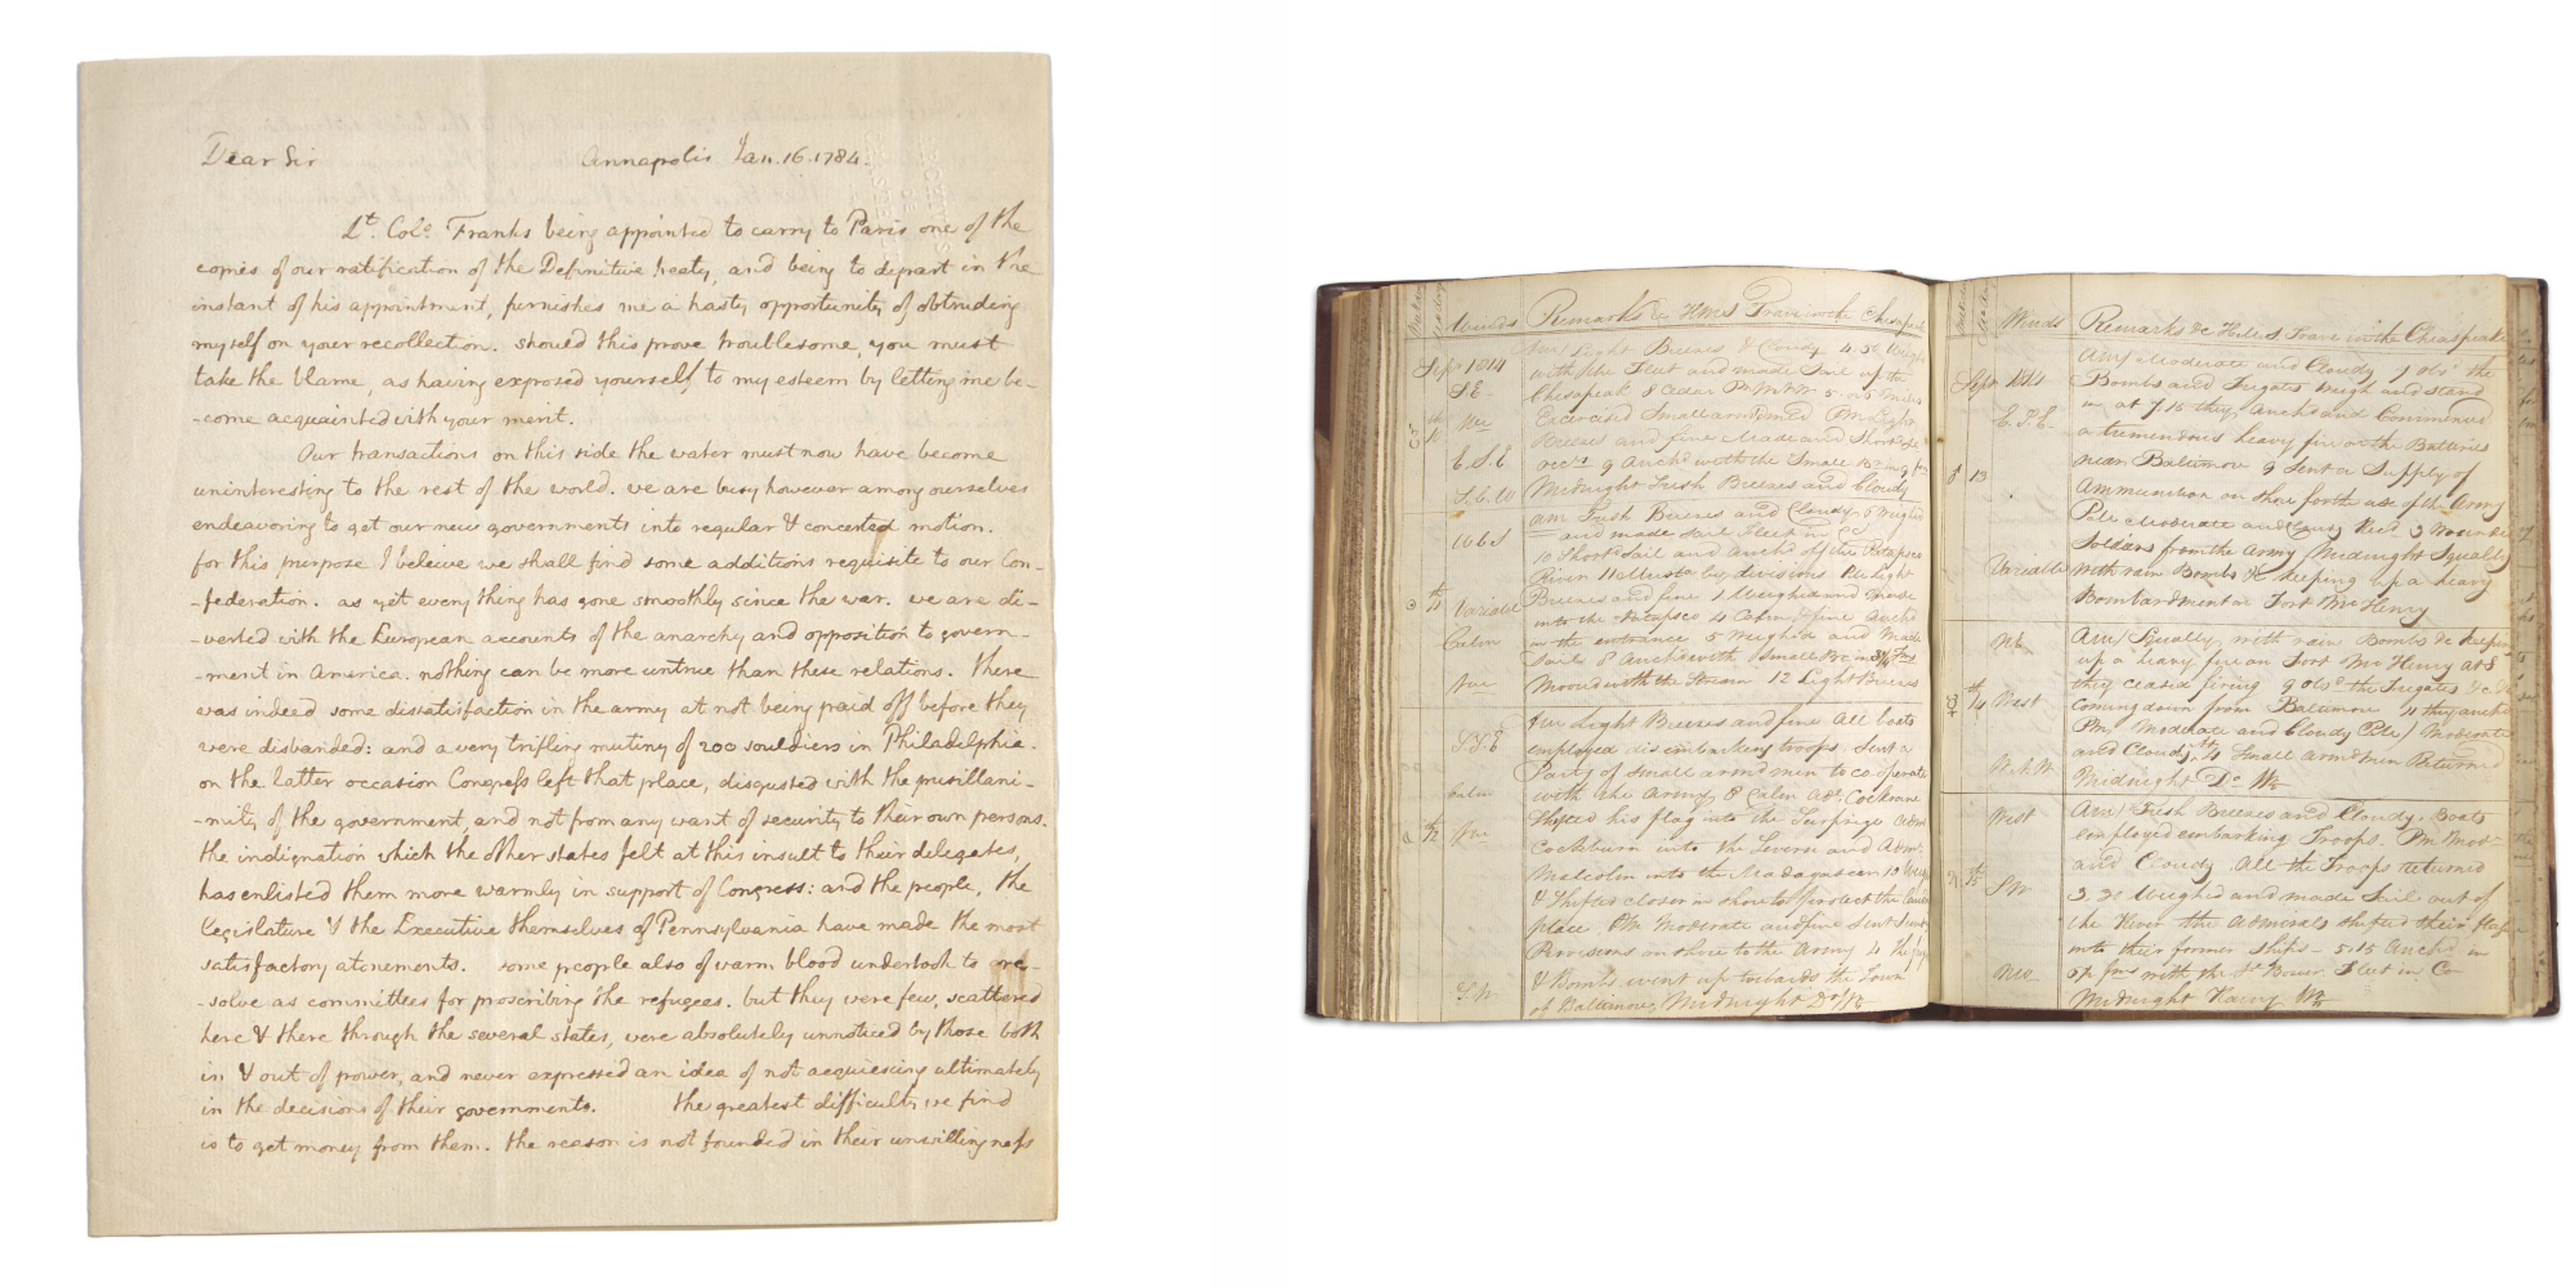 Dear Sir Annapolis Jan. 16. 1784.
Lt. Colo. Franks being appointed to carry to Paris one of the
copies of our ratification of the Definitive treaty, and being to depart in the
instant of his appointment, furnishes me a hasty opportunity of obtruding
myself on your recollection. should this prove troublesome, you must
take the blame, as having exposed yourself to my esteem by letting me be-
-come acquainted with your merit.
Our transactions on this side the water must now have become
uninteresting to the rest of the world. we are busy however among ourselves
endeavoring to get our new governments into regular & concerted motion.
for this purpose I beleive we shall find some additions requisite to our Con-
-federation. as yet every thing has gone smoothly since the war. we are di-
-verted with the European accounts of the anarchy and opposition to govern-
-ment in America. nothing can be more untrue than these relations. there
was indeed some dissatisfaction in the army at not being paid off before they
were disbanded: and a very trifling mutiny of 200 souldiers in Philadelphia.
on the latter occasion Congress left that place, disgusted with the pusillani-
-mity of the government, and not from any want of security to their own persons.
the indignation which the other states felt at this insult to their delegates,
has enlisted them more warmly in support of Congress: and the people, the
legislature & the Executive themselves of Pennsylvania have made the most
satisfactory atonements. some people also of warm blood undertook to re-
-solve as committees for proscribing the refugees. but they were few, scattered
here & there through the several states, were absolutely unnoticed by those both
in & out of power, and never expressed an idea of not acquiescing ultimately
in the decisions of their governments. the greatest difficulty we find
is to get money from them. the reason is not founded in their unwillingness
Winds Remarks &c HMS Trave in the Chesapeak
Sepr 1814 Am/ Light Breezes & Cloudy 4.50 Weighd
with the Fleet and made Sail up the
S.E. Chesapeak 8 Cedar Pt 5 or 6 Miles
Exercised Small arm'd men Pm Light
Breezes and fine Made and Shortd Sl
E.S.E 9 Anchd with the Small Br in 9 fms
Midnight Fresh Breezes and Cloudy
Am Fresh Breezes and Cloudy 6 Weighed
and made Sail Fleet in Co
10 Shortd Sail and Anchd off the Patapsco
River 11 Musterd by divisions Pm Light
11th Variable Breezes and fine 1 Weighed and made
into the Patapsco 4 Calm & fine Anchd
Calm in the entrance 5 Weighed and Made
Sail 8 Anchd with Small Br in 3½ fms
Moored with the Stream 12 Light Breezes
Am Light Breezes and fine All boats
S.S.E employed disembarking troops. Sent a
Party of Small armd men to co-operate
Calm with the Army 8 Calm Adl. Cockrane
12th Shifted his flag into the Surprize Adml
Cockburn into the Severn and Adml.
Malcolm into the Madagascar 10 Weighd
& Shifted closer in shore to protect the landing
place Pm Moderate and fine Sent
Provisions on shore to the Army 4 The frigs
& Bombs went up towards the Town
of Baltimore, Midnight Do Wr
Winds Remarks &c HMS Trave in the Cheasapeake
Sepr 1814 Am/ Moderate and Cloudy 7 Obsd the
Bombs and Frigates weigh and stand
E.S.E. in at 7.15 they Anchd and Commenced
a tremendous heavy fire on the Batteries
13 near Baltimore 9 Sent a Supply of
Ammunition on shore for the use of the Army
Pm Moderate and Cloudy Recd 3 Wounded
Soldiers from the Army Midnight Squally
Variable with rain Bombs &c keeping up a heavy
Bombardment on Fort McHenry
Am/ Squally with rain Bombs &c keeping
up a heavy fire on Fort Mc Henry at 8
14th West they ceased firing 9 Obsd the Frigates &c
coming down from Baltimore 11 they anchd
Pm Moderate and Cloudy Moderate
and Cloudy Small armd men Returned
N.N.W Midnight Do Wr
West Am/ Fresh Breezes and Cloudy. Boats
employed embarking Troops. Pm Modr
and Cloudy. All the Troops returned
15th SW 3.30 Weighed and made Sail out of
the River the Admirals shifted their flags
into their former Ships - 5.15 Anchd in
fms with the Bower. Fleet in Co
Midnight Wr